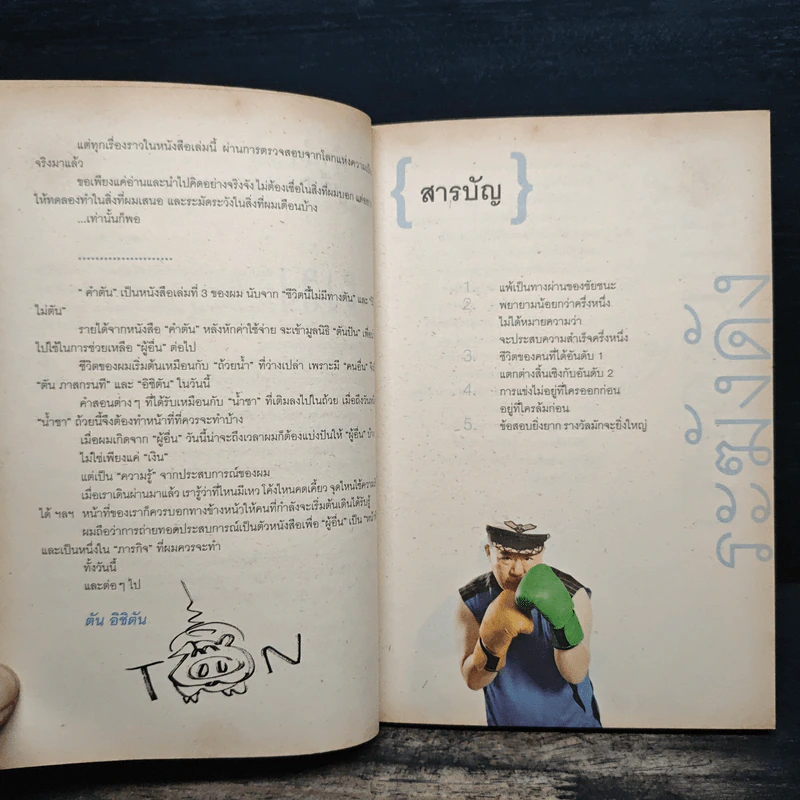 แต่ทุกเรื่องราวในหนังสือเล่มนี้ ผ่านการตรวจสอบจากโลกแห่งความ
จริงมาแล้ว
ขอเพียงแค่อ่านและนำไปคิดอย่างจริงจัง ไม่ต้องเชื่อในสิ่งที่ผมบอก
ให้ทดลองทำในสิ่งที่ผมเสนอ และระมัดระวังในสิ่งที่ผมเตือนบ้าง
...เท่านั้นก็พอ
.......................
"คำตัน" เป็นหนังสือเล่มที่ 3 ของผม นับจาก "ชีวิตนี้ไม่มีทางตัน" และ
ไม่ตัน"
รายได้จากหนังสือ "คำตัน" หลังหักค่าใช้จ่าย จะเข้ามูลนิธิ "ตันปัน" เพื่อ
ไปใช้ในการช่วยเหลือ "ผู้อื่น" ต่อไป
ชีวิตของผมเริ่มต้นเหมือนกับ "ถ้วยน้ำ" ที่ว่างเปล่า เพราะมี "คนอื่น"
"ตัน ภาสกรนที" และ "อิชิตัน" ในวันนี้
คำสอนต่างๆ ที่ได้รับเหมือนกับ "น้ำชา" ที่เติมลงไปในถ้วย เมื่อถึงวัน
"น้ำชา" ถ้วยนี้จึงต้องทำหน้าที่ที่ควรจะทำบ้าง
เมื่อผมเกิดจาก "ผู้อื่น" วันนี้น่าจะถึงเวลาผมก็ต้องแบ่งปันให้ "ผู้อื่น"
ไม่ใช่เพียงแค่ "เงิน"
แต่เป็น "ความรู้" จากประสบการณ์ของผม
เมื่อเราเดินผ่านมาแล้ว เรารู้ว่าที่ไหนมีเหว โค้งไหนคดเคี้ยว จุดไหนใช้
ได้ ฯลฯ หน้าที่ของเราก็ควรบอกทางข้างหน้าให้คนที่กำลังจะเริ่มต้นเดินได้รับรู้
ผมถือว่าการถ่ายทอดประสบการณ์เป็นตัวหนังสือเพื่อ "ผู้อื่น" เป็น
และเป็นหนึ่งใน "ภารกิจ" ที่ผมควรจะทำ
ทั้งวันนี้
และต่อๆ ไป
ตัน อิชิตัน
TON
{สารบัญ}
1. แพ้เป็นทางผ่านของชัยชนะ
2. พยายามน้อยกว่าครึ่งหนึ่ง
ไม่ได้หมายความว่า
จะประสบความสำเร็จครึ่งหนึ่ง
3. ชีวิตของคนที่ได้อันดับ 1
แตกต่างสิ้นเชิงกับอันดับ 2
4. การแข่งไม่อยู่ที่ใครออกก่อน
อยู่ที่ใครล้มก่อน
5. ข้อสอบยิ่งยาก รางวัลมักจะยิ่งใหญ่
ระฆังดัง